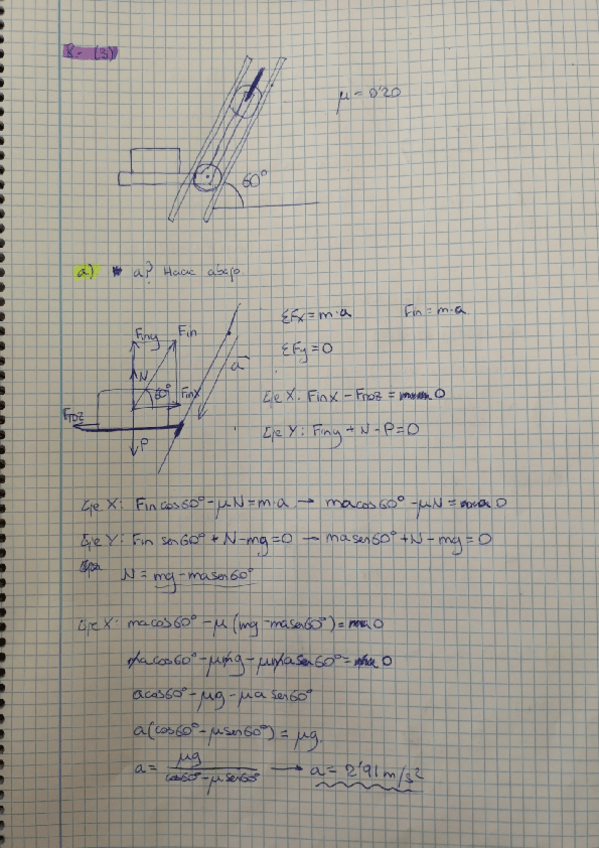 8.- (3)
μ = 0'20
60°
a) a? Hacia abajo
ΣFx = m·a Fin = m·a
ΣFy = 0
Finy Fin
N
60° Finx
a
Froz
P
Eje X: Finx - Froz = 0
Eje Y: Finy + N - P = 0
Eje X: Fin cos60° - μN = m·a → macos60° - μN = 0
Eje Y: Fin sen60° + N - mg = 0 → masen60° + N - mg = 0
N = mg - masen60°
Eje X: macos60° - μ(mg - masen60°) = 0
macos60° - μmg - μmasen60° = 0
acos60° - μg - μasen60°
a(cos60° - μsen60°) = μg
a = μg / cos60° - μsen60° → a = 2'91 m/s²